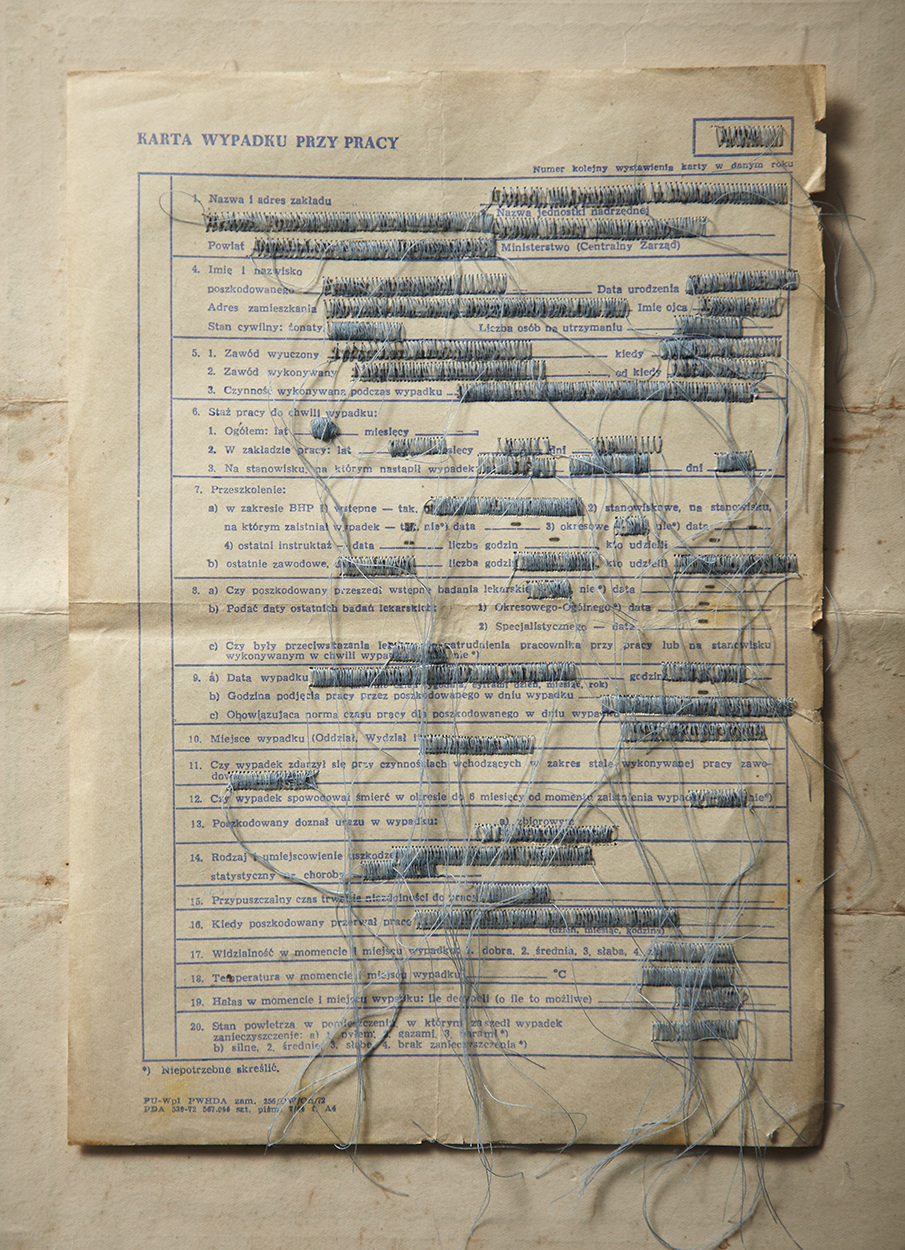 KARTA WYPADKU PRZY PRACY
Numer kolejny wystawienia karty w danym roku
1. Nazwa i adres zakładu
Nazwa jednostki nadrzędnej
Powiat Ministerstwo (Centralny Zarząd)
4. Imię i nazwisko
poszkodowanego Data urodzenia
Adres zamieszkania Imię ojca
Stan cywilny: żonaty, Liczba osób na utrzymaniu
5. 1. Zawód wyuczony kiedy
2. Zawód wykonywany od kiedy
3. Czynność wykonywana podczas wypadku
6. Staż pracy do chwili wypadku:
1. Ogółem: lat miesięcy
2. W zakładzie pracy: lat dni
3. Na stanowisku, na którym nastąpił wypadek: dni
7. Przeszkolenie:
a) w zakresie BHP 1) wstępne — tak, 2) stanowiskowe, na stanowisku,
na którym zaistniał wypadek — tak, nie*) data 3) okresowe nie*) data
4) ostatni instruktaż — data liczba godzin kto udzielił
b) ostatnie zawodowe, liczba godzin kto udzielił
8. a) Czy poszkodowany przeszedł wstępne badania lekarskie nie*) data
b) Podać daty ostatnich badań lekarskich: 1) Okresowego-Ogólnego*) data
2) Specjalistycznego — data
c) Czy były przeciwskazania zatrudnienia pracownika przy pracy lub na stanowisku
wykonywanym w chwili wypadku nie*)
9. a) Data wypadku godzina
rok)
b) Godzina podjęcia pracy przez poszkodowanego w dniu wypadku
c) Obowiązująca norma czasu pracy dla poszkodowanego w dniu wypadku
10. Miejsce wypadku (Oddział, Wydział
11. Czy wypadek zdarzył się przy czynnościach wchodzących w zakres stale wykonywanej pracy zawo-
12. Czy wypadek spowodował śmierć w okresie do 6 miesięcy od momentu zaistnienia nie*)
13. Poszkodowany doznał urazu w wypadku: a) zbiorowym
14. Rodzaj i umiejscowienie
statystyczny nr choroby
15. Przypuszczalny czas trwania niezdolności do pracy
16. Kiedy poszkodowany przerwał pracę
(dzień, miesiąc, godzina)
17. Widzialność w momencie i miejscu wypadku: 1. dobra, 2. średnia, 3. słaba, 4.
18. Temperatura w momencie i miejscu wypadku °C
19. Hałas w momencie i miejscu wypadku: ile decybeli (o ile to możliwe)
20. Stan powietrza w pomieszczeniu, w którym zaszedł wypadek
zanieczyszczenie: a) 1. pyłem, 2. gazami, 3. parami*)
b) silne, 2. średnie, 3. słabe, 4. brak zanieczyszczenia*)
*) Niepotrzebne skreślić.
PU-Wp1 PWHDA zam.
PDA szt. piśm. A4